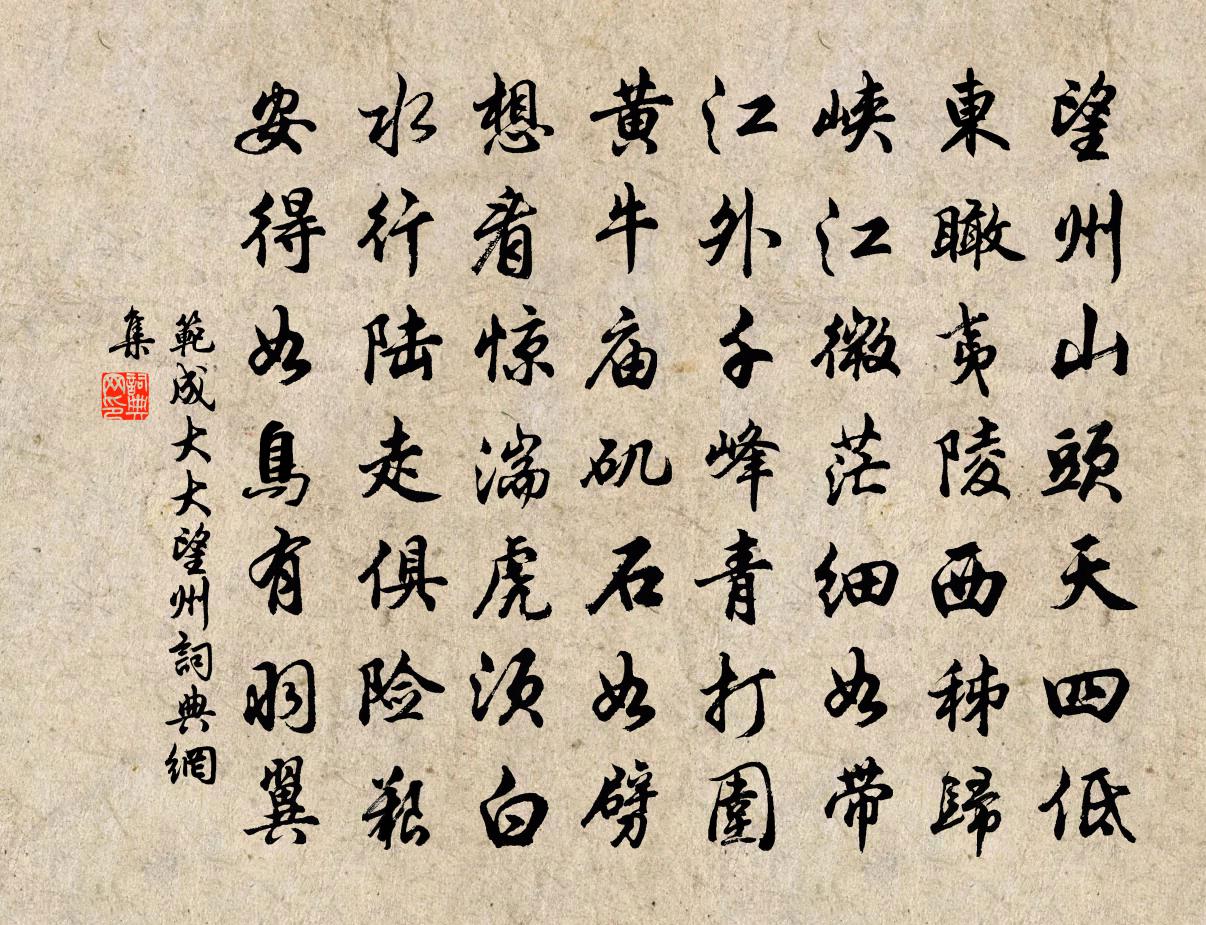 望州山頭天四低
東瞰夷陵西秭歸
峡江微茫細如带
江外千峰青打圍
黄牛庙矶石如劈
想看惊湍虎须白
水行陆走俱险艱
安得如鳥有羽翼
範成大大望州詞典網
集
詞典
网印